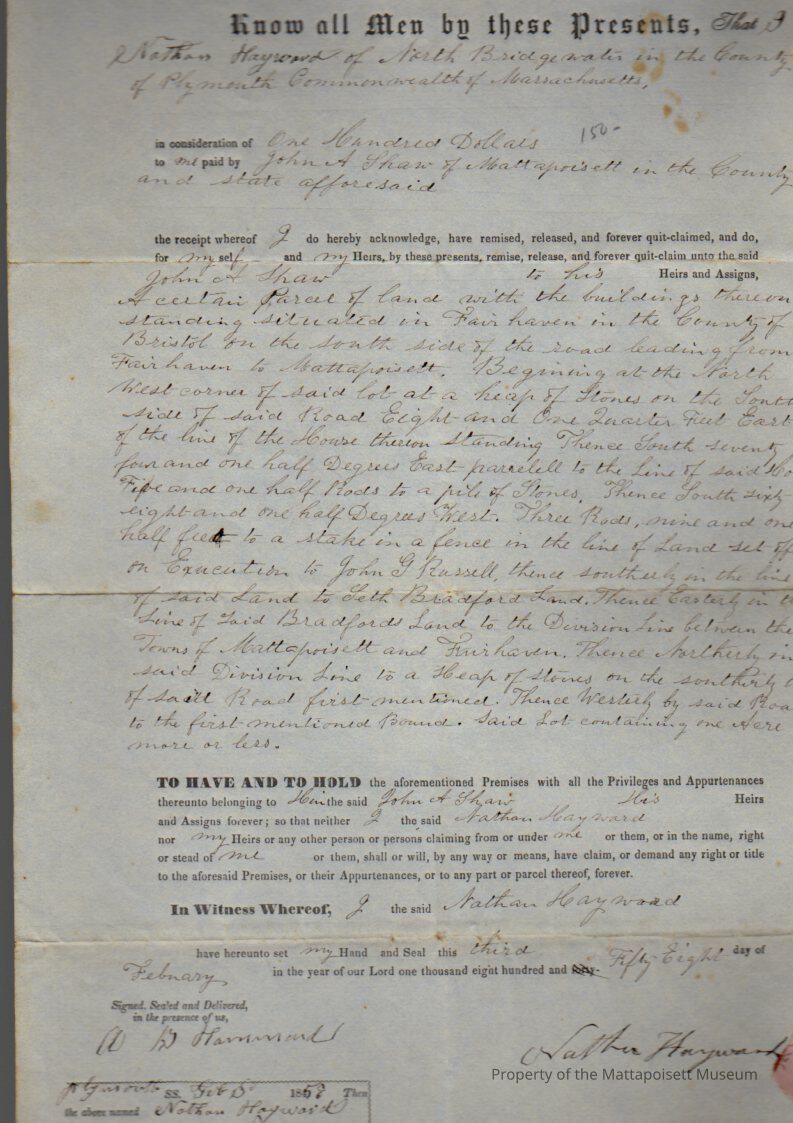 Know all Men by these Presents, That I
Nathan Hayward of North Bridgewater in the County
of Plymouth Commonwealth of Massachusetts,
150-
in consideration of One Hundred Dollars
to me paid by John A Shaw of Mattapoisett in the County
and state afforesaid
the receipt whereof I do hereby acknowledge, have remised, released, and forever quit-claimed, and do,
for my self and my Heirs, by these presents, remise, release, and forever quit-claim unto the said
John A Shaw to his Heirs and Assigns,
A certain Parcel of land with the buildings thereon
standing situated in Fairhaven in the County of
Bristol on the south side of the road leading from
Fairhaven to Mattapoisett. Begining at the North
West corner of said lot at a heap of Stones on the South
side of said Road Eight and One Quarter Feet East
of the line of the House theron standing Thence South seventy
four and one half Degrees East parrelell to the Line of said
Five and one half Rods to a pile of Stones, Thence South sixty
eight and one half Degrees West. Three Rods, nine and one
half feet to a stake in a fence in the line of Land set off
on Execution to John G Russell, thence southerly in the line
of said Land to Seth Bradford Land. Thence Easterly in
Line of Said Bradfords Land to the Division Line between the
Towns of Mattapoisett and Fairhaven. Thence Northerly in
said Division Line to a Heap of stones on the southerly
of said Road first mentioned. Thence Westerly by said Roa
to the first mentioned Bound. Said Lot containing one Acre
more or less.
TO HAVE AND TO HOLD the aforementioned Premises with all the Privileges and Appurtenances
thereunto belonging to Him the said John A Shaw His Heirs
and Assigns forever; so that neither I the said Nathan Hayward
nor my Heirs or any other person or persons claiming from or under me or them, or in the name, right
or stead of me or them, shall or will, by any way or means, have claim, or demand any right or title
to the aforesaid Premises, or their Appurtenances, or to any part or parcel thereof, forever.
In Witness Whereof, I the said Nathan Hayward
have hereunto set my Hand and Seal this third day of
Febuary in the year of our Lord one thousand eight hundred and Fifty Eight
Signed, Sealed and Delivered,
in the presence of us,
A B Hammond
Nathan Hayward
Property of the Mattapoisett Museum
Plymouth ss. Feb 1858 Then
the above named Nathan Hayward